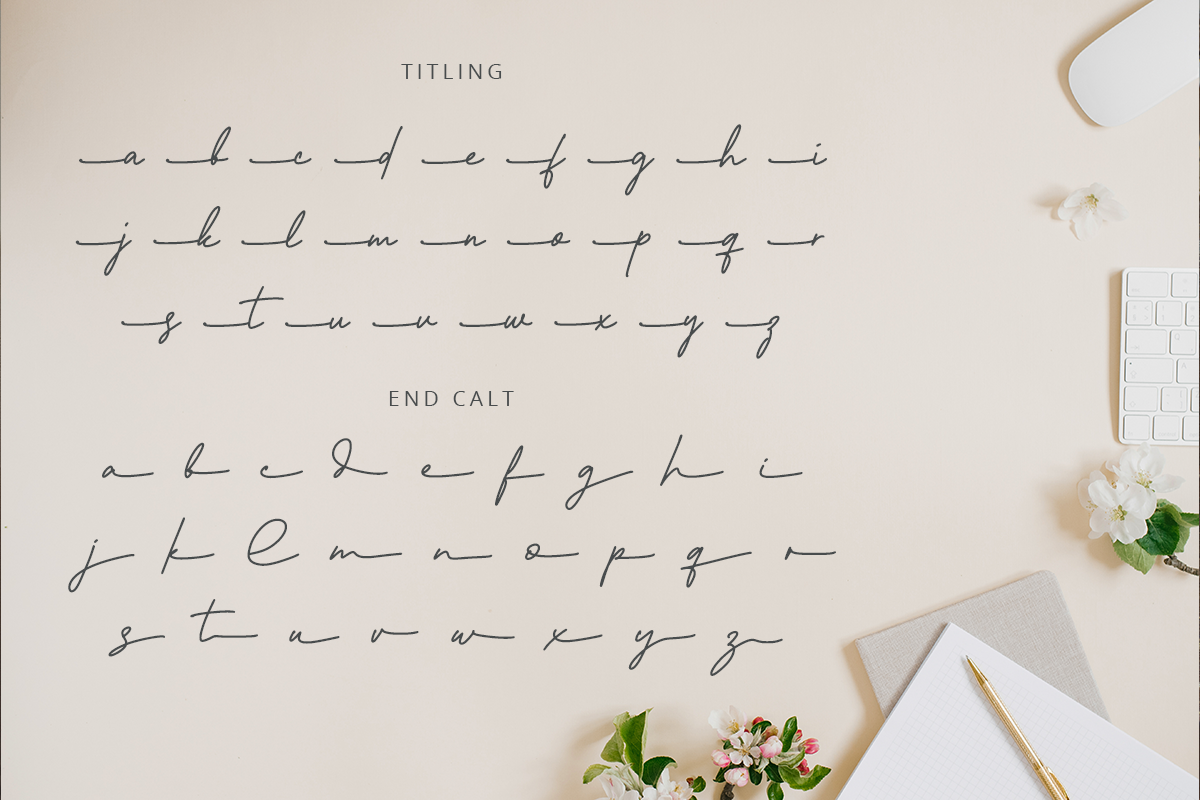 TITLING
a b c d e f g h i
j k l m n o p q r
s t u v w x y z
END CALT
a b c d e f g h i
j k l m n o p q r
s t u v w x y z